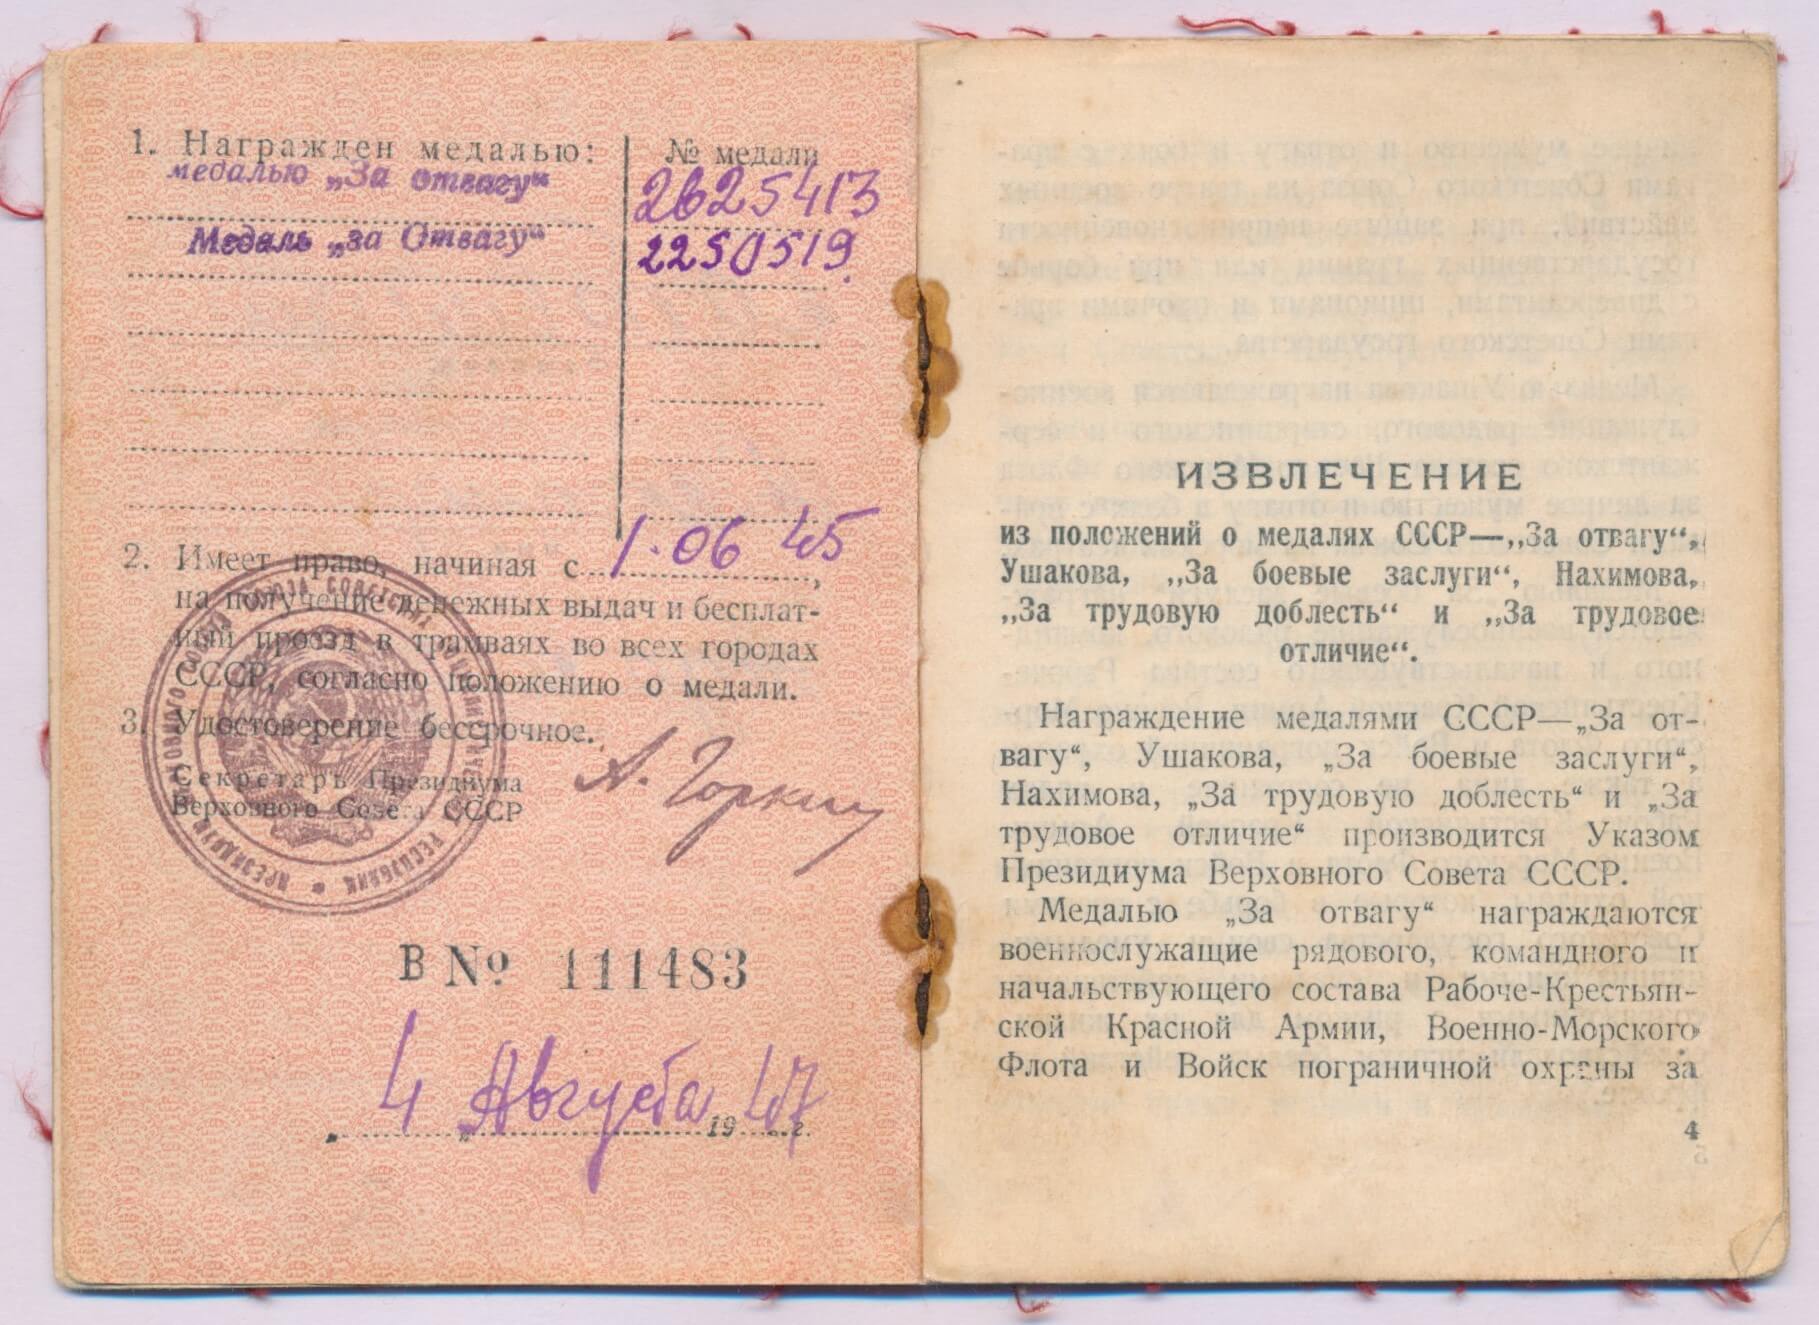 1. Награжден медалью:
№ медали
медалью „За отвагу“
2625413
Медаль „за Отвагу“
2250519.
2. Имеет право, начиная с 1.06 45,
на получение денежных выдач и бесплат-
ный проезд в трамваях во всех городах
СССР, согласно положению о медали.
3. Удостоверение бессрочное.
Секретарь Президиума
Верховного Совета СССР
А. Горкин
В № 111483
„ 4 „ Августа 19 47 г.
ИЗВЛЕЧЕНИЕ
из положений о медалях СССР—„За отвагу“,
Ушакова, „За боевые заслуги“, Нахимова,
„За трудовую доблесть“ и „За трудовое
отличие“.
Награждение медалями СССР—„За от-
вагу“, Ушакова, „За боевые заслуги“,
Нахимова, „За трудовую доблесть“ и „За
трудовое отличие“ производится Указом
Президиума Верховного Совета СССР.
Медалью „За отвагу“ награждаются
военнослужащие рядового, командного и
начальствующего состава Рабоче-Крестьян-
ской Красной Армии, Военно-Морского
Флота и Войск пограничной охраны за
4